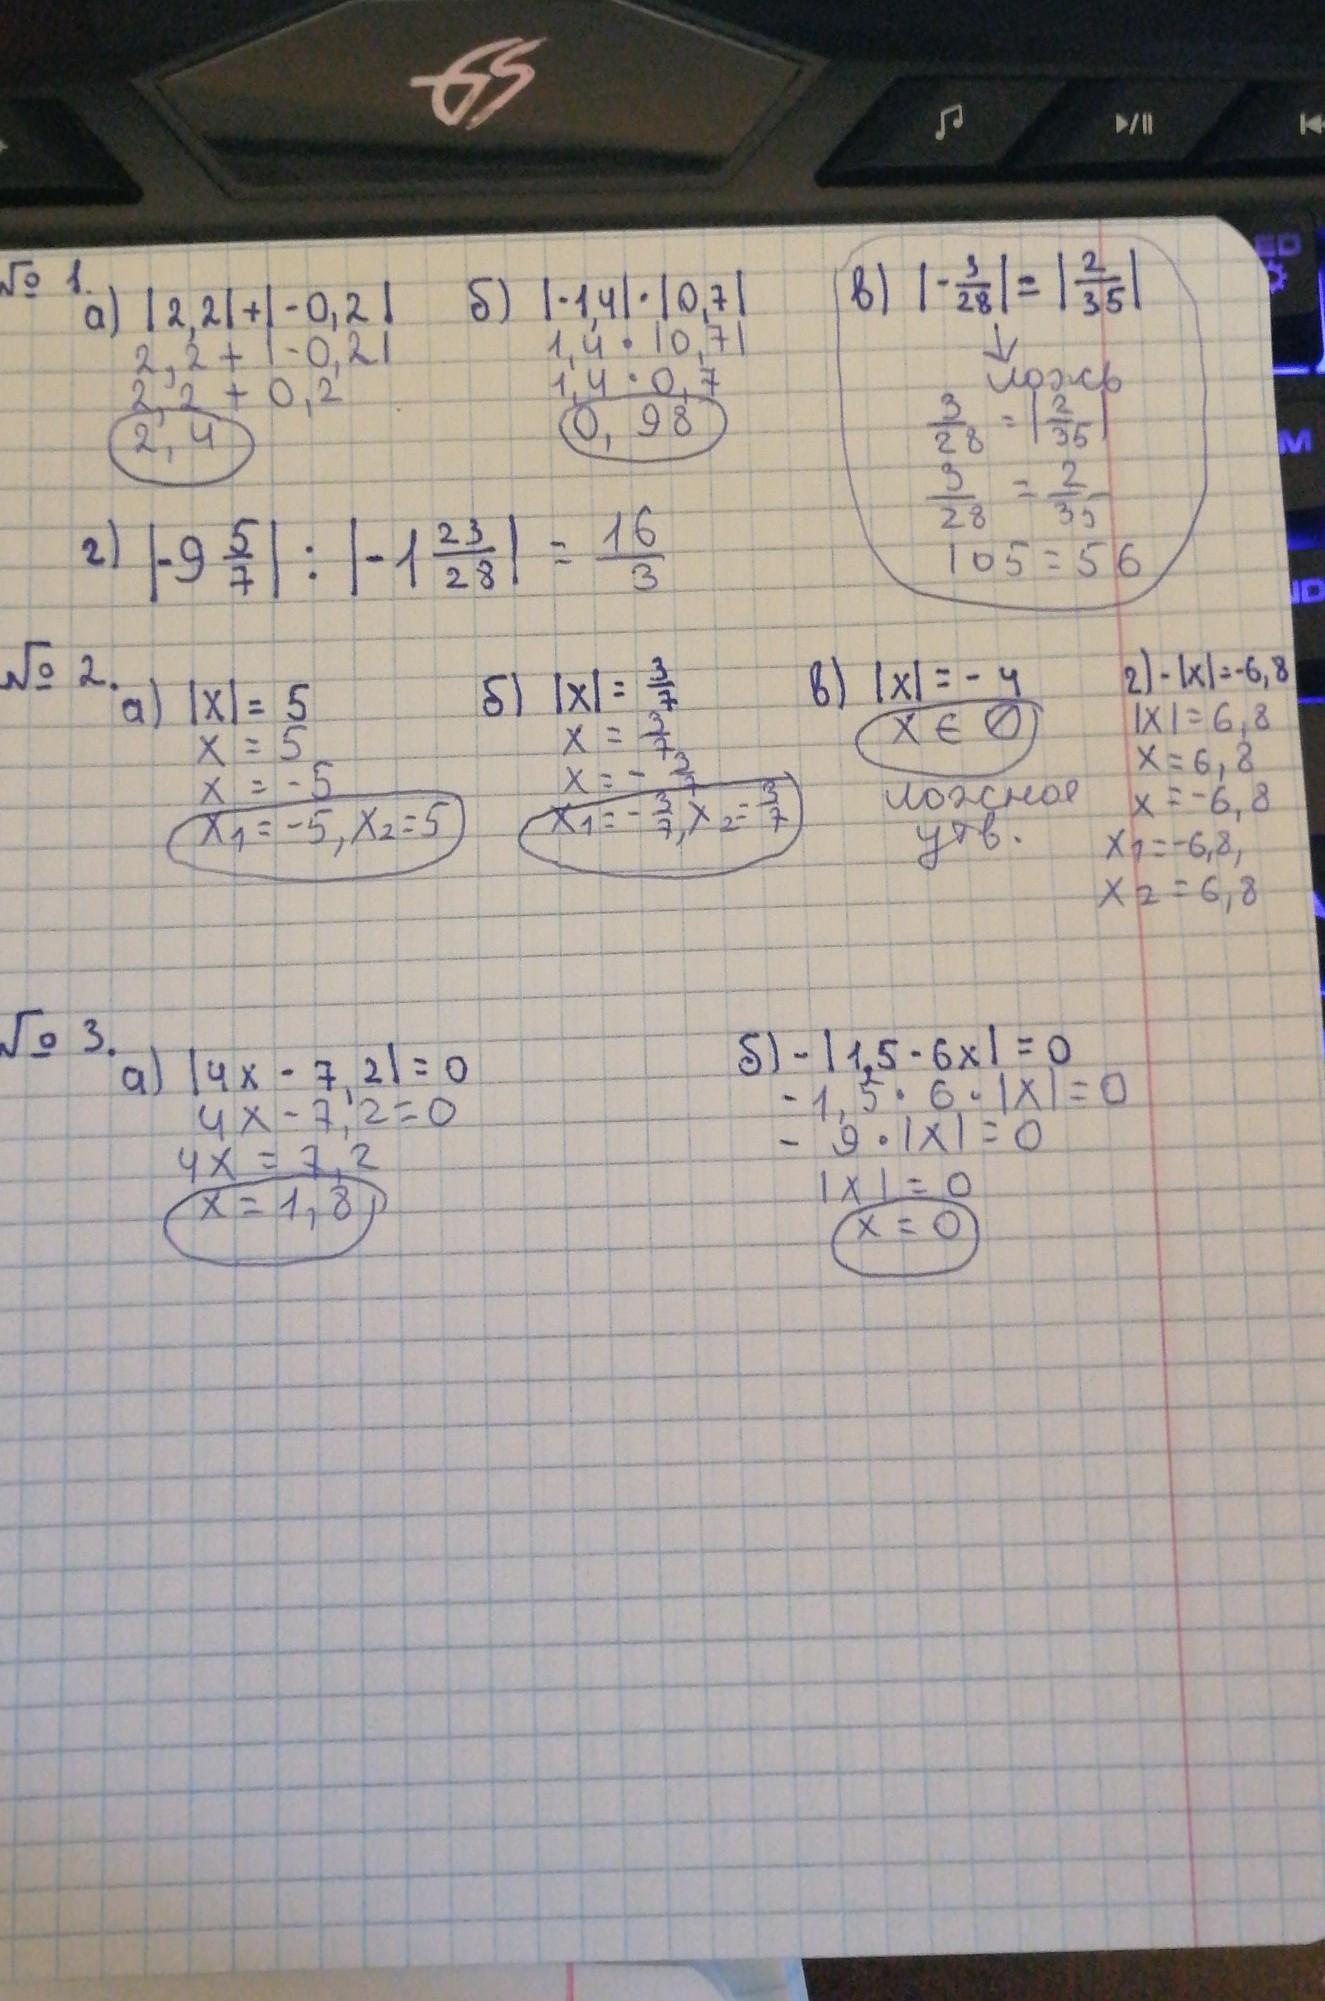 GS
№ 1.
а) |2,2|+|-0,2|
2,2 + |-0,2|
2,2 + 0,2
2,4
б) |-1,4|·|0,7|
1,4·|0,7|
1,4·0,7
0,98
в) |-3/28|=|2/35|
ложь
3/28 =|2/35|
3/28 = 2/35
105=56
г) |-9 5/7| : |-1 23/28| = 16/3
№ 2.
а) |x|= 5
x = 5
x = -5
x₁=-5, x₂=5
б) |x|= 3/7
x = 3/7
x = -3/7
x₁=-3/7, x₂=3/7
в) |x|=-4
x ∈ ∅
ложное
утв.
г) -|x|=-6,8
|x|=6,8
x=6,8
x=-6,8
x₁=-6,8,
x₂=6,8
№ 3.
а) |4x-7,2|=0
4x-7,2=0
4x=7,2
x=1,8
б) -|1,5·6x|=0
-1,5·6·|x|=0
-9·|x|=0
|x|=0
x=0